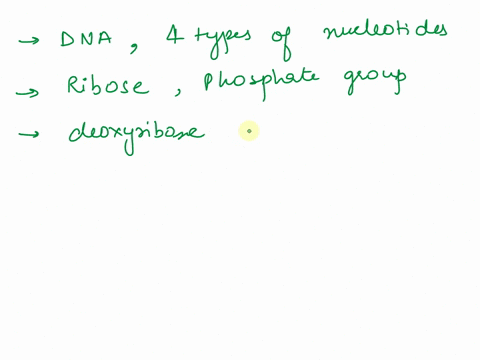 → DNA, 4 types of nucleotides
→ Ribose, Phosphate group
→ deoxyribose